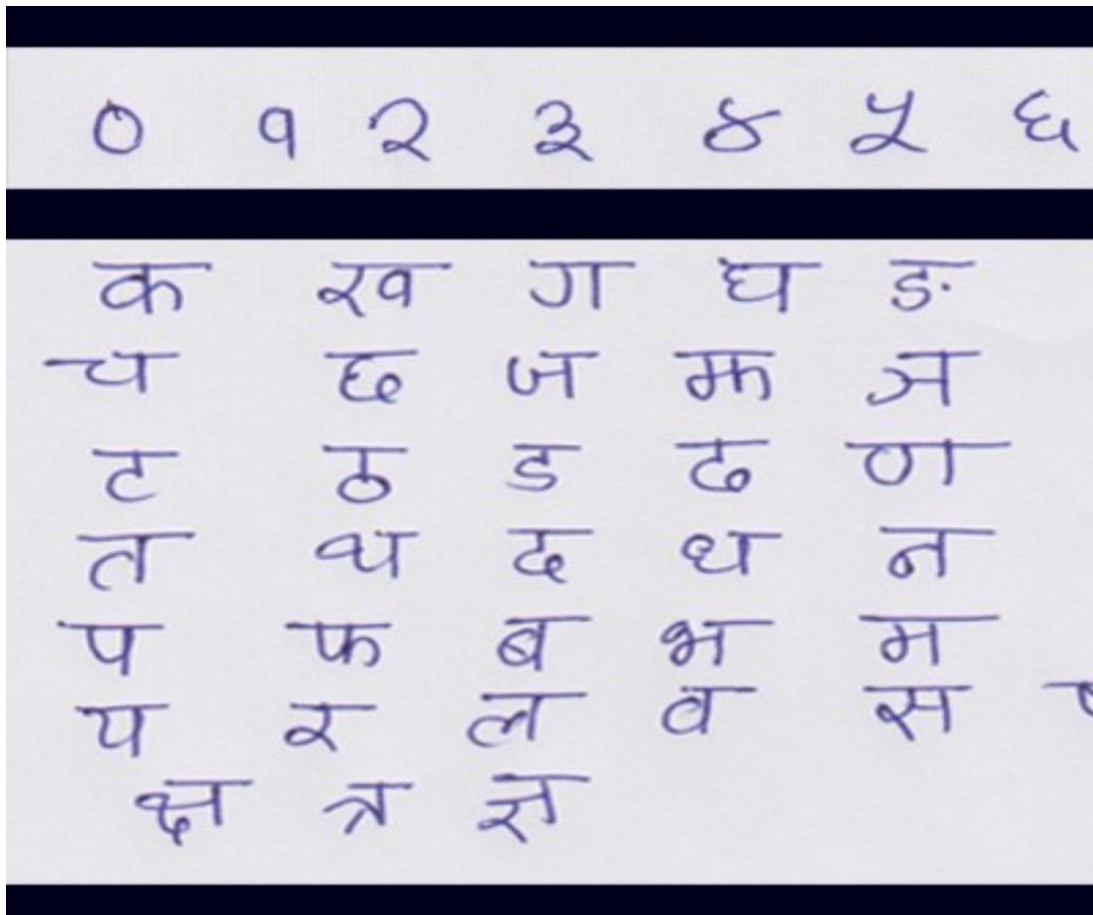 ० १ २ ३ ४ ५ ६
क ख ग घ ङ
च छ ज झ ञ
ट ठ ड ढ ण
त थ द ध न
प फ ब भ म
य र ल व स
क्ष त्र ज्ञ